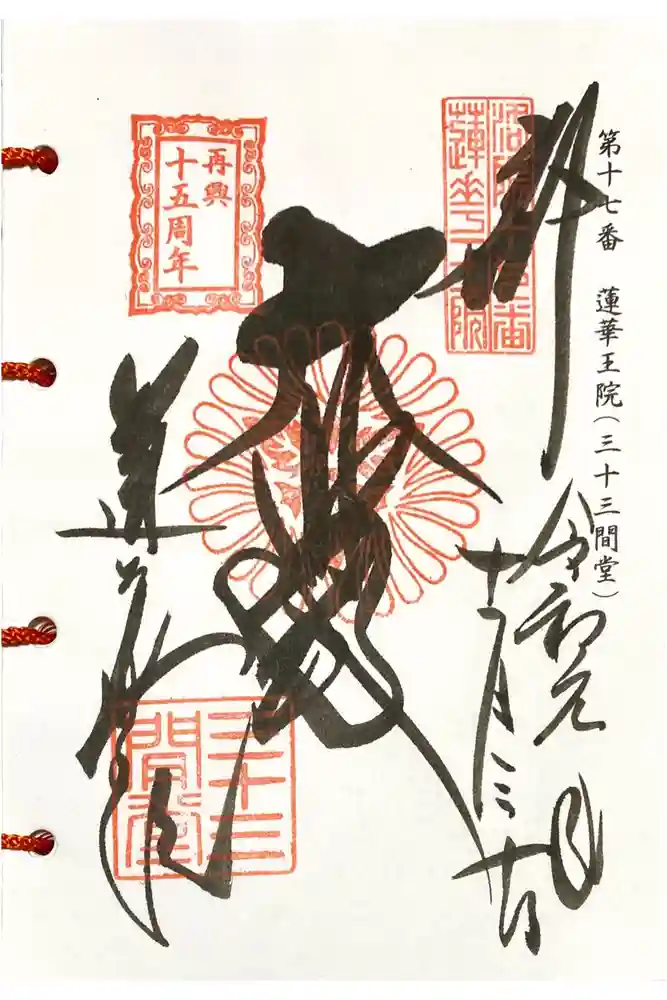 第十七番 蓮華王院(三十三間堂)
奉拝
洛陽十七番
蓮華王院
令和元
再興
十五周年
蓮華王院
三十三
間堂